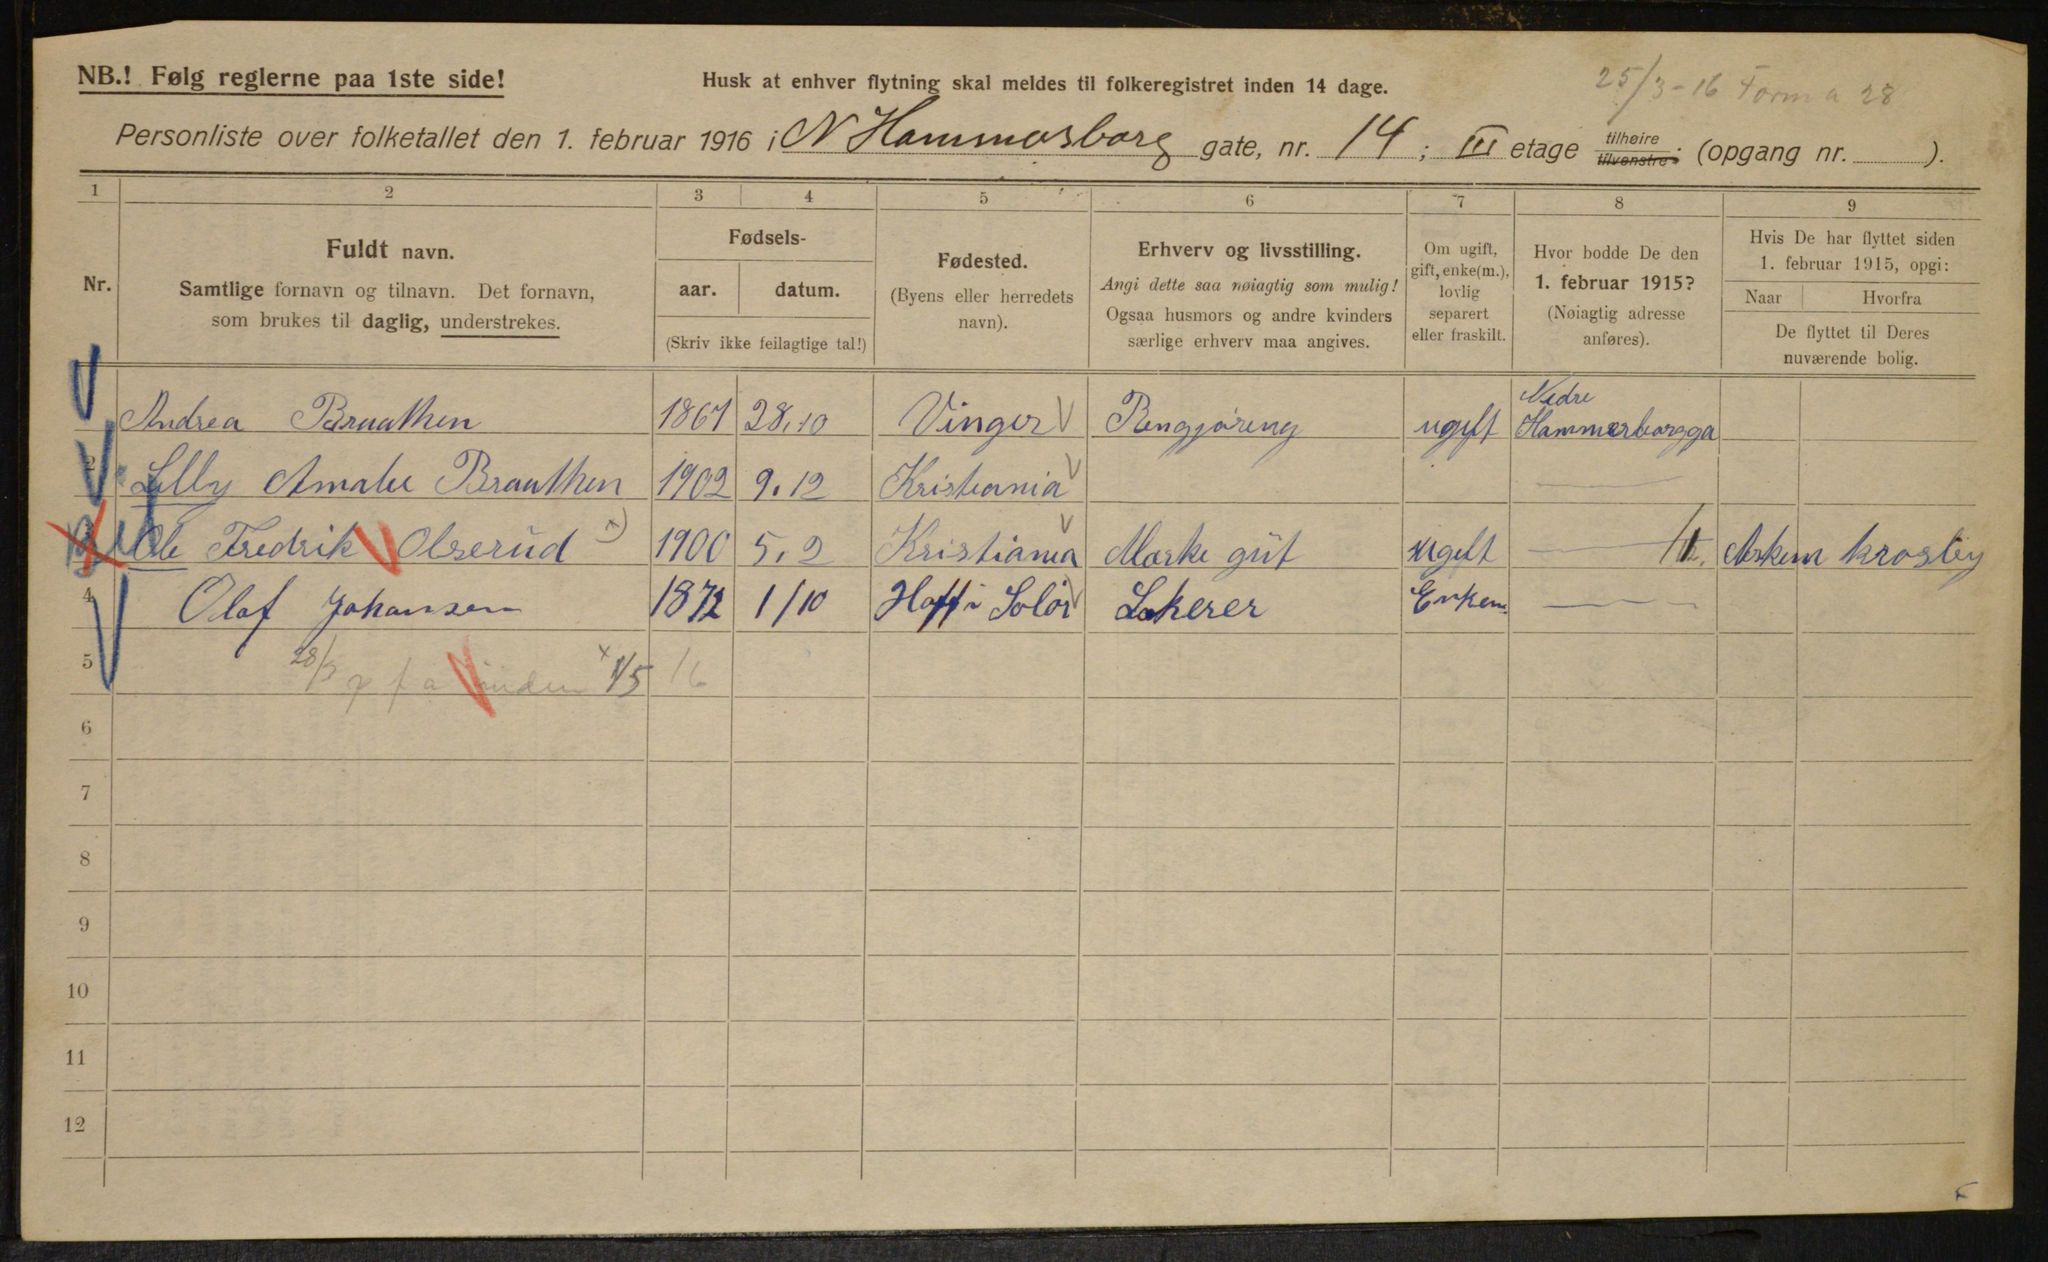 NB.! Følg reglerne paa 1ste side!
Husk at enhver flytning skal meldes til folkeregistret inden 14 dage.
25/3-16 Form a 28
Personliste over folketallet den 1. februar 1916 i N Hammersborg gate, nr. 14; III etage tilhøire tilvenstre. (opgang nr. ).
1 2 3 4 5 6 7 8 9
Nr.
Fuldt navn.
Samtlige fornavn og tilnavn. Det fornavn,
som brukes til daglig, understrekes.
Fødsels-
aar. datum.
(Skriv ikke feilagtige tal!)
Fødested.
(Byens eller herredets
navn).
Erhverv og livsstilling.
Angi dette saa nøiagtig som mulig!
Ogsaa husmors og andre kvinders
særlige erhverv maa angives.
Om ugift,
gift, enke(m.),
lovlig
separert
eller fraskilt.
Hvor bodde De den
1. februar 1915?
(Nøiagtig adresse
anføres).
Hvis De har flyttet siden
1. februar 1915, opgi:
Naar Hvorfra
De flyttet til Deres
nuværende bolig.
Andrea Braathen 1867 28.10 Vinger Rengjøreng ugift Nedre Hammerborgga
2 Lilly Amalie Braathen 1902 9.12 Kristiania
Ole Fredrik Olserud x) 1900 5.2 Kristiania ugift
4 Olaf Johansen 1872 1/10 Hoff i Solør Enkem.
5 x 1/5 16
6
7
8
9
10
11
12